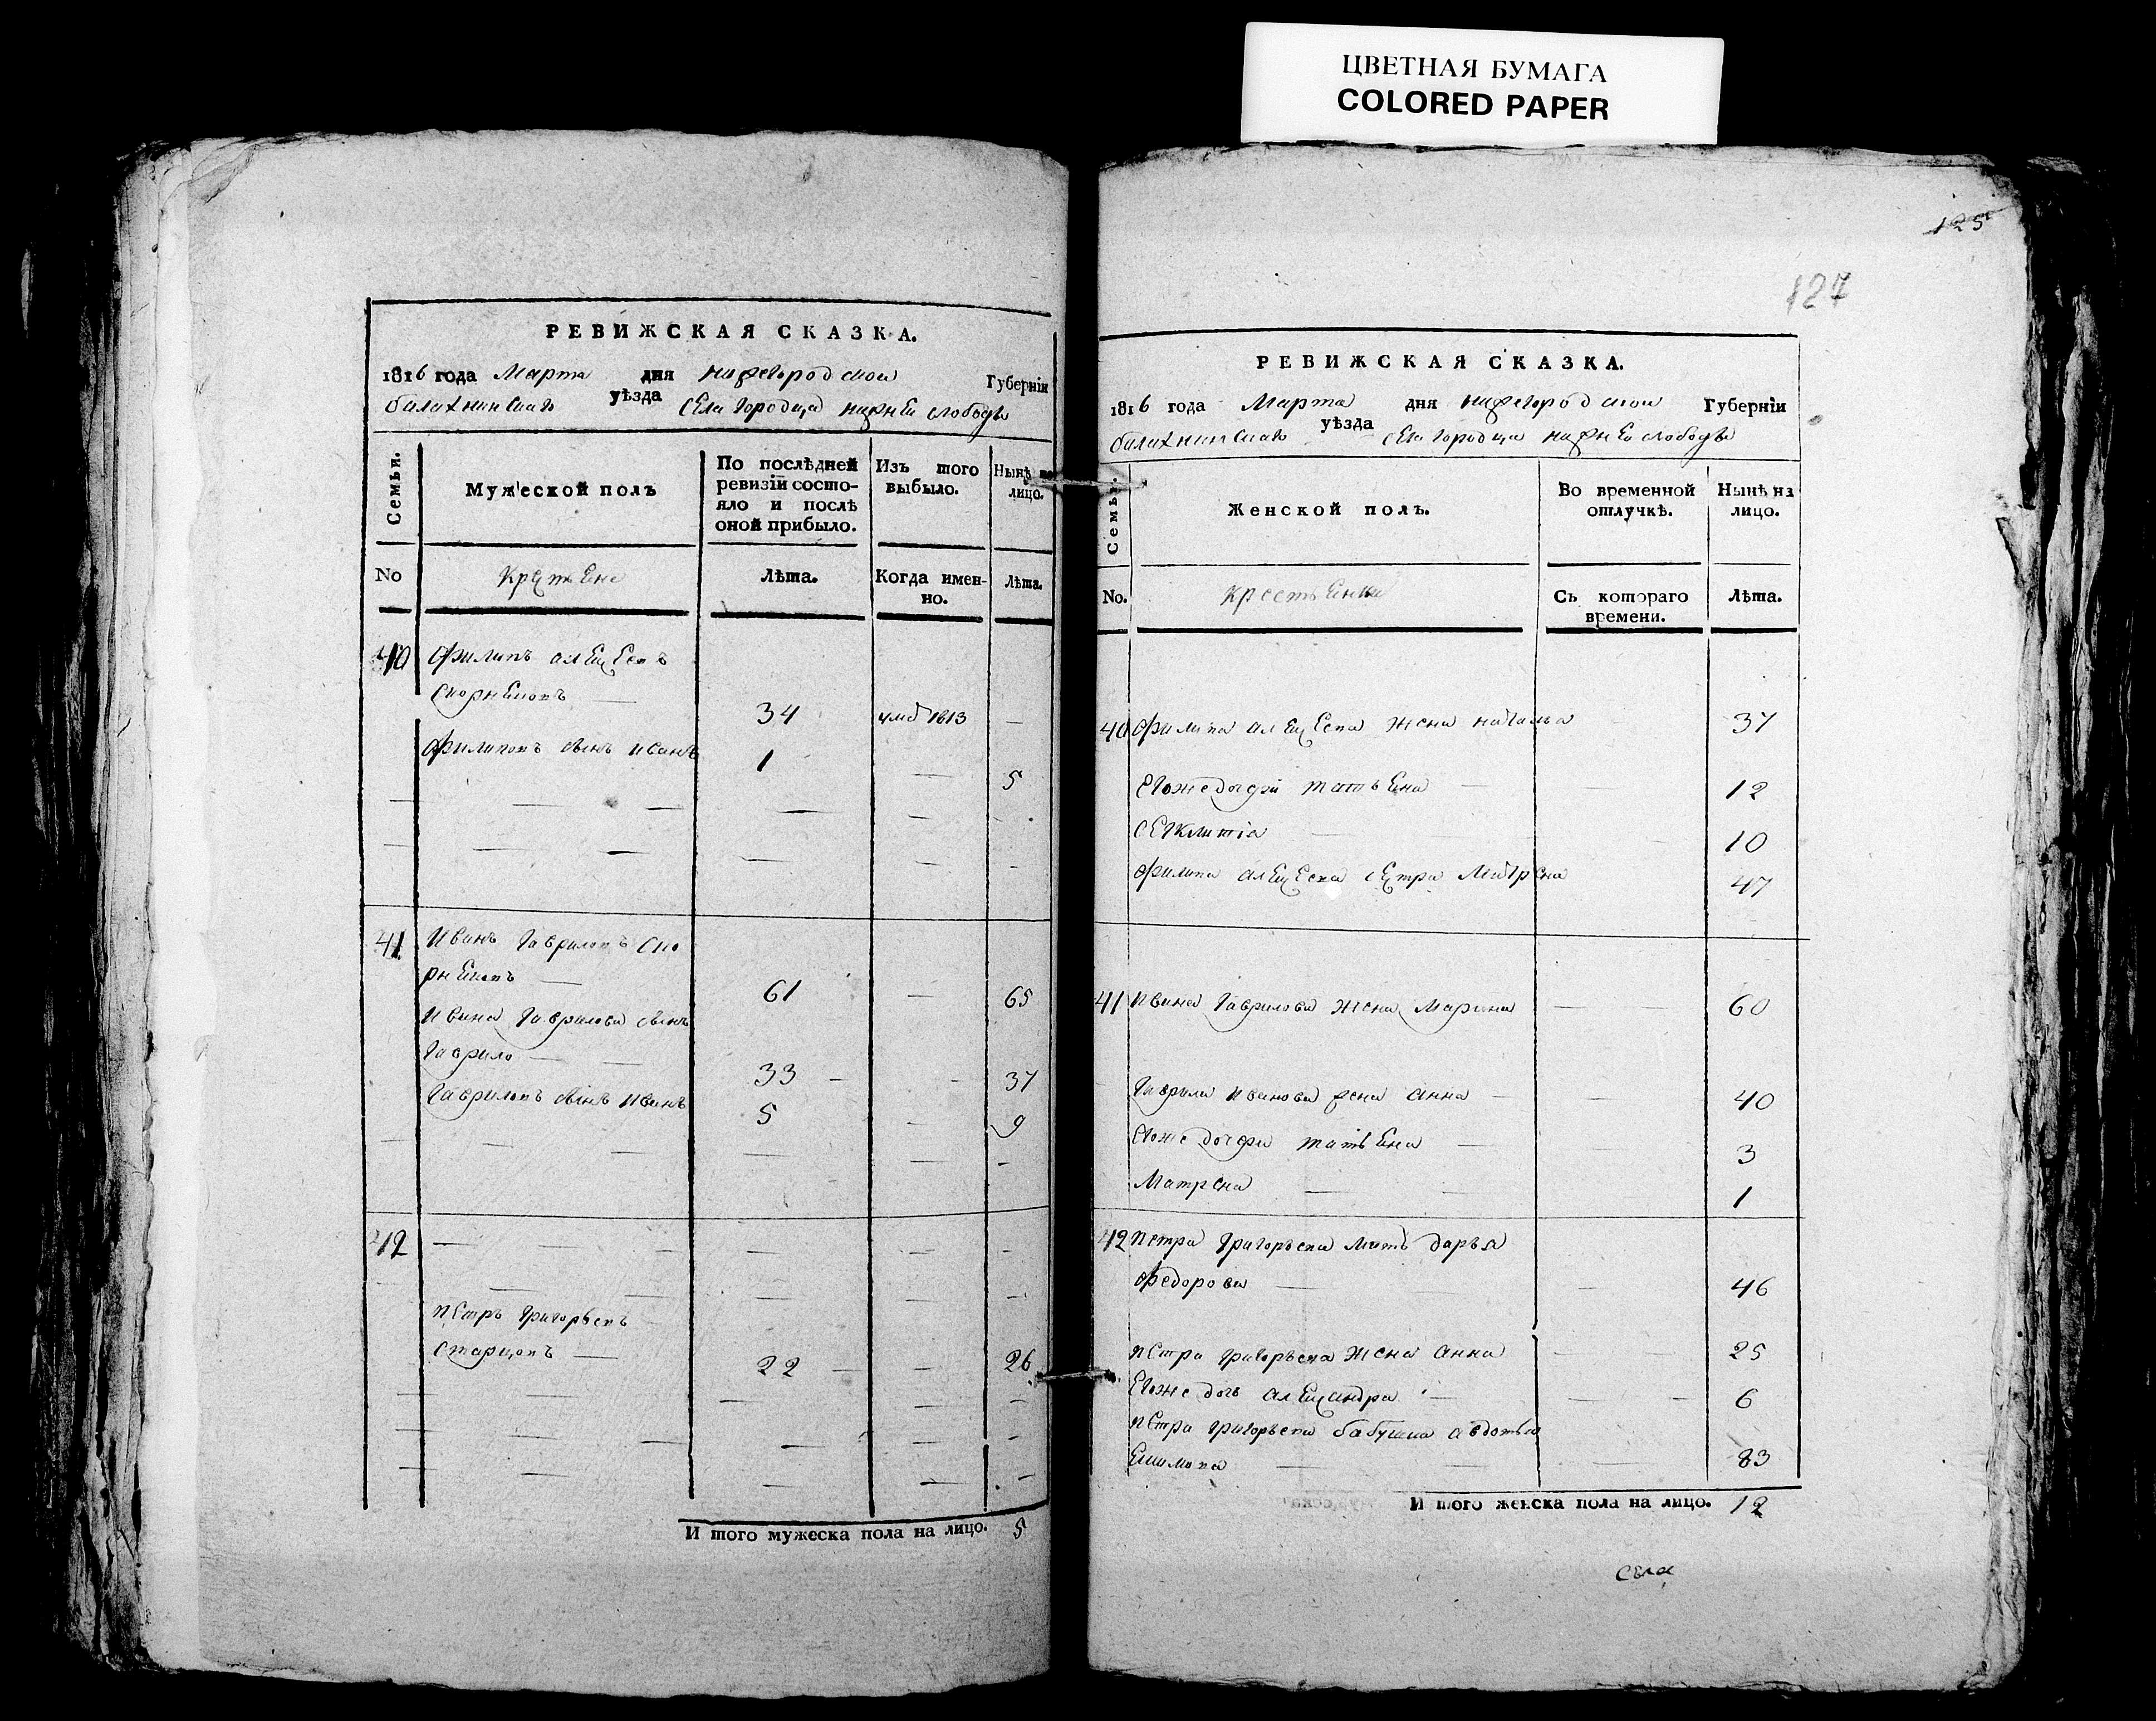 ЦВЕТНАЯ БУМАГА
COLORED PAPER
РЕВИЖСКАЯ СКАЗКА.
1816 года Марта дня нижегородской Губернїи
балахнинскаго уѣзда села городца нижнеи слободы
Семьи.
Мужеской полъ
По послѣдней ревизїи состо-
яло и послѣ оной прибыло.
Изъ того выбыло.
Нынѣ на лицо.
No
крестьене
Лѣта.
Когда имен-
но.
Лѣта.
40 Филипъ алексеевъ
34 умѣ 1813 —
Филиповъ сынъ иванъ 1 — 5
41 Иванъ Гавриловъ
61 — 65
Ивана Гаврилова сынъ
Гаврило — 33 — 37
Гавриловъ сынъ иванъ 5 — 9
42 —
петръ григорьевъ
старцовъ — 22 — 26
И того мужеска пола на лицо. 5
125
127
РЕВИЖСКАЯ СКАЗКА.
1816 года Марта дня нижегородской Губернїи
балахнинскаго уѣзда села городца нижнеи слободы
Семьи.
Женской полъ.
Во временной отлучкѣ.
Нынѣ на лицо.
No.
крестьенки
Съ котораго времени.
Лѣта.
40 Филипа алексеева жена наталья 37
егоже дочери татьена — 12
секлитіа — 10
Филипа алексеева сестра Матрена 47
41 Ивана Гаврилова жена Марина — 60
Гаврила иванова жена анна — 40
егоже дочери татьена — 3
Матрена — 1
42 петра григорьева мать дарья
Федорова — 46
петра григорьева жена анна — 25
егоже дочь александра — 6
петра григорьева бабушка авдотья
83
И того женска пола на лицо. 12
села